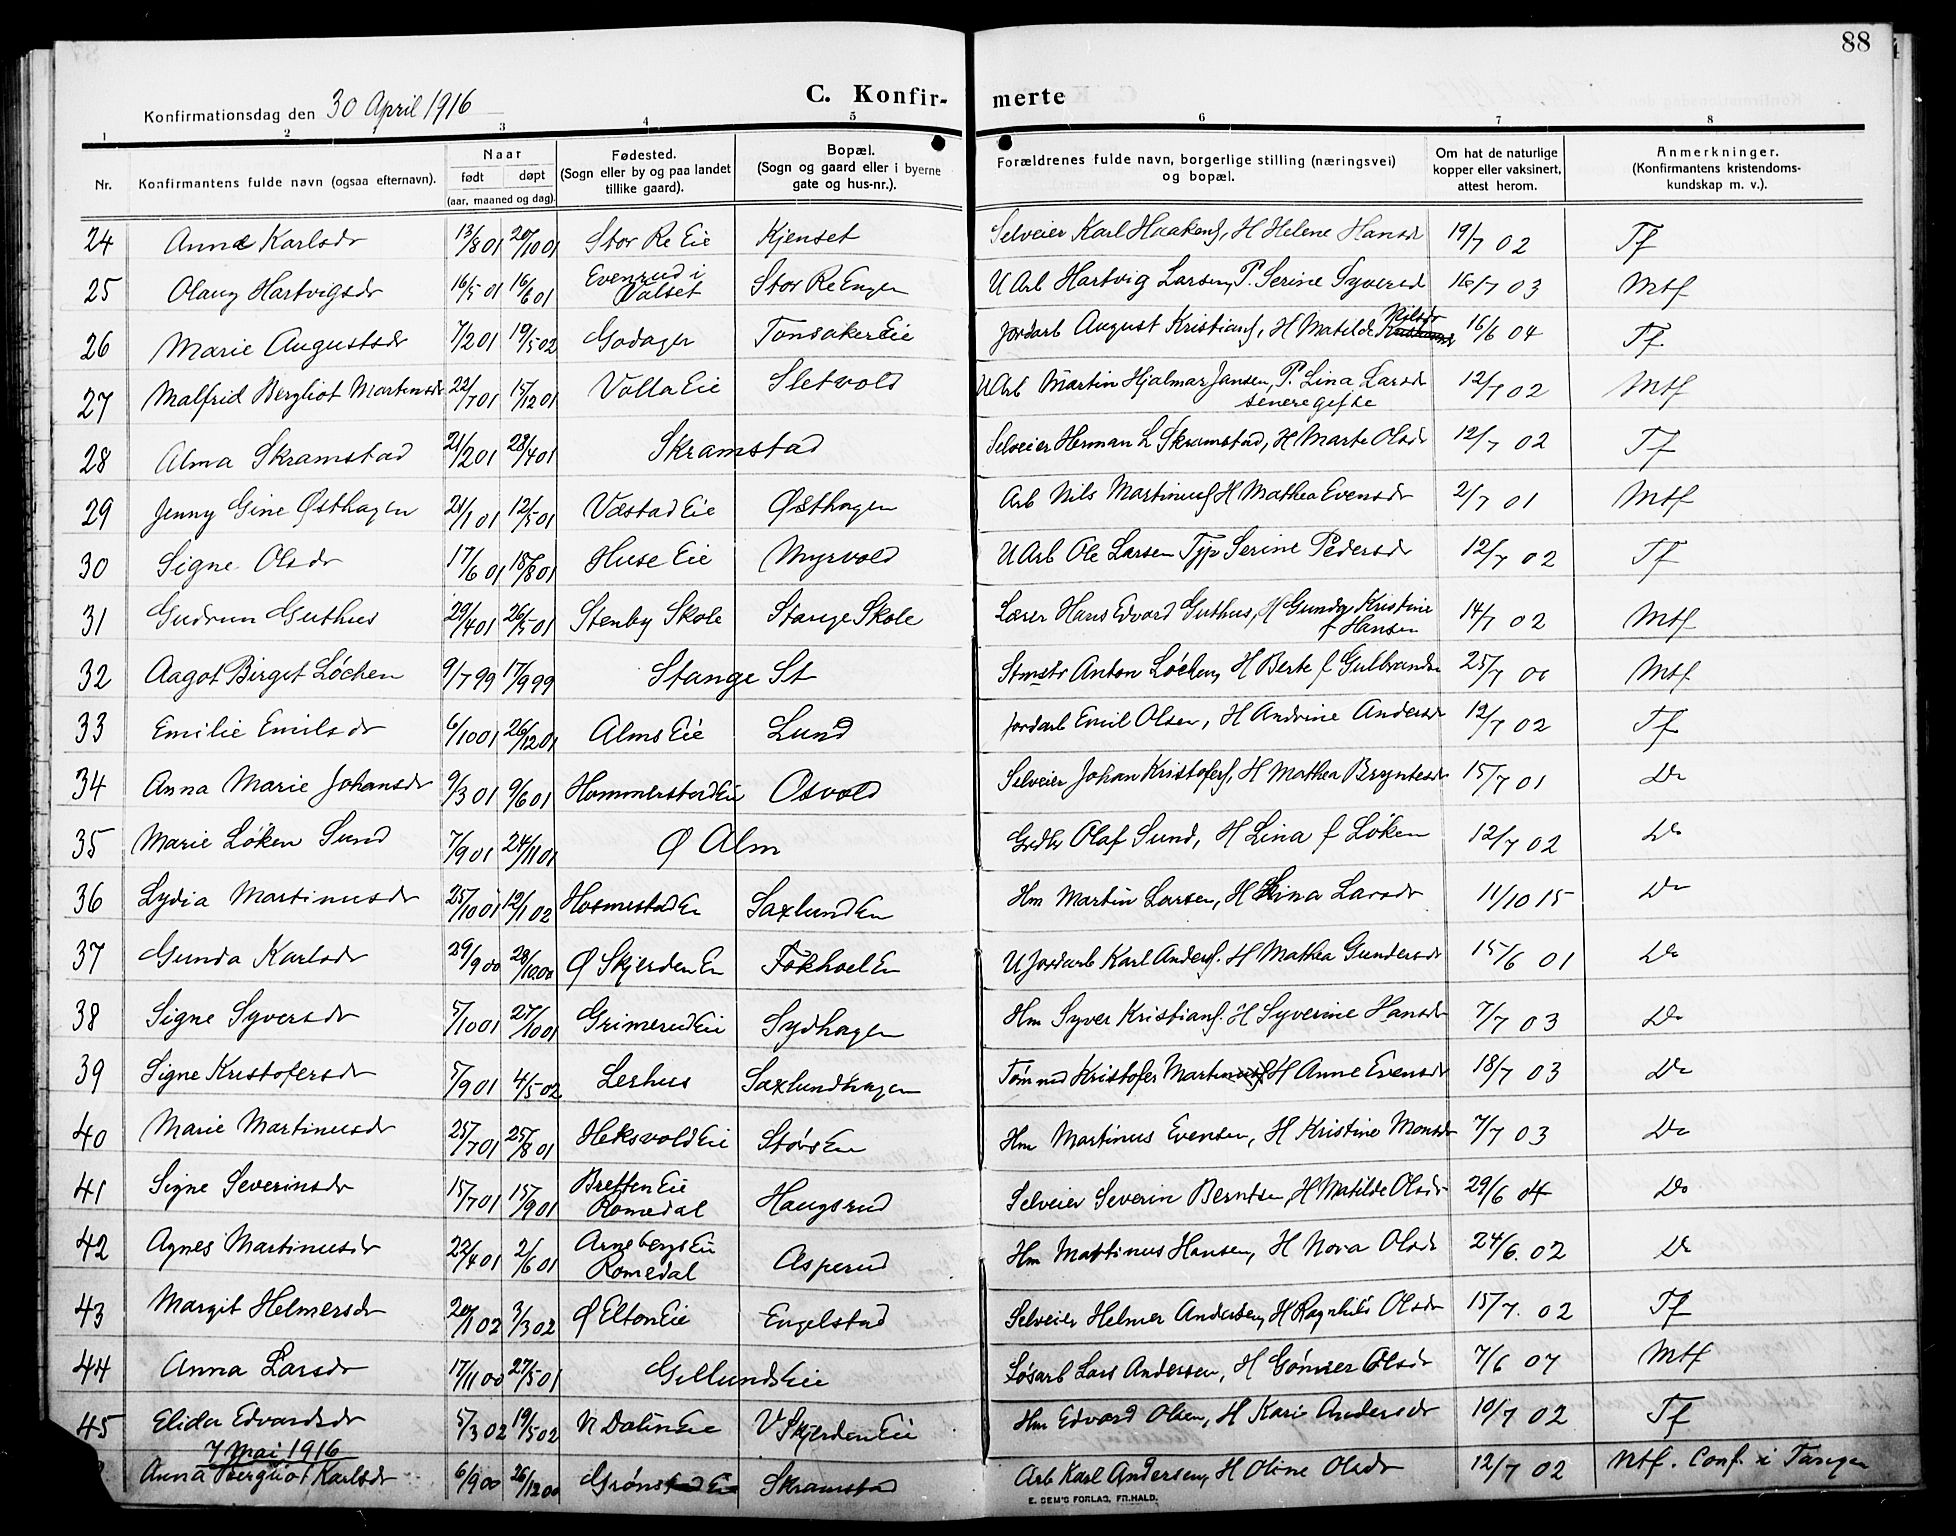 88
C. Konfirmerte
Konfirmationsdag den 30 April 1916
1 2 3 4 5 6 7 8
Nr. Konfirmantens fulde navn (ogsaa efternavn). Naar født døpt (aar, maaned og dag). Fødested. (Sogn eller by og paa landet tillike gaard). Bopæl. (Sogn og gaard eller i byerne gate og hus-nr.). Forældrenes fulde navn, borgerlige stilling (næringsvei) og bopæl. Om hat de naturlige kopper eller vaksinert, attest herom. Anmerkninger. (Konfirmantens kristendomskundskap m. v.).
24 Anna Karlsdr 13/8 01 20/10 01 Stor Re Eie Kjenset Selveier Karl Haakens, H Helene Hansdr 19/7 02 Tf
25 Olaug Hartvigsdr 16/5 01 16/6 01 Evenrud i Valset Stor Re Engen U Arb Hartvig Larsen, P. Serine Syversd 16/7 03 Mtf
26 Marie Augustsdr 7/2 01 19/5 02 Godager Tonsaker Eie Jordarb August Kristians, H Matilde Nilsdr 16/6 04 Tf
27 Malfrid Bergliot Martinsdr 22/7 01 15/12 01 Volla Eie Sletvold U Arb Martin Hjalmar Jansen, P. Lina Larsdr senere gifte 12/7 02 Mtf
28 Alma Skramstad 21/2 01 28/4 01 Skramstad Selveier Herman L Skramstad, H Marte Olsdr 12/7 02 Tf
29 Jenny Gine Østhagen 21/1 01 12/5 01 Væstad Eie Østhagen Arb Nils Martinus H Mathea Evensdr 2/7 01 Mtf
30 Signe Olsdr 17/6 01 18/8 01 Huse Eie Myrvold U Arb Ole Larsen Typ Serine Pedersdr 12/7 02 Tf
31 Gudrun Guthus 29/4 01 26/5 01 Stenby Skole Stange Skole Lærer Hans Edvard Guthus, H Gunda Kristine f Hansen 14/7 02 Mtf
32 Aagot Birgit Løchen 9/7 99 17/9 99 Stange St Stmstr Anton Løchen, H Berte f Gulbrandsen 25/7 00 Mtf
33 Emilie Emilsdr 6/10 01 26/12 01 Alms Eie Lund Jordarb Emil Olsen, H Andrine Andersdr 12/7 02 Tf
34 Anna Marie Johansdr 9/3 01 9/6 01 Hommerstad Eie Osvold Selveier Johan Kristofers, H Mathea Bryntesdr 15/7 01 Do
35 Marie Løken Sund 7/9 01 24/11 01 Ø Alm Grdbr Olaf Sund, H Lina f Løken 12/7 02 Do
36 Lydia Martinusdr 25/10 01 12/1 02 Hosmestad Ei Saxlund En Hm Martin Larsen, H Lina Larsdr 11/10 15 Do
37 Gunda Karlsdr 29/9 00 28/10 00 Ø Skjerden Ei Fokhol Ei U Jordarb Karl Anders. H Mathea Gundersdr 15/6 01 Do
38 Signe Syversdr 5/10 01 27/10 01 Grimerud Eie Sydhagen Hm Syver Kristians. H Syverine Hansdr 7/7 03 Do
39 Signe Kristofersdr 5/9 01 4/5 02 Lerhus Saxlundhagen Tømmd Kristofer Martinus H Anne Evensdr 18/7 03 Do
40 Marie Martinusdr 25/7 01 25/8 01 Heksvold Eie Størs En Hm Martinus Evensen, H Kristine Monsdr 7/7 03 Do
41 Signe Severinsdr 15/7 01 15/9 01 Bretten Eie Romedal Haugsrud Selveier Severin Berntsen, H Matilde Olsdr 29/6 04 Do
42 Agnes Martinusdr 22/4 01 2/6 01 Arneberg Ei Romedal Asperud Hm Martinus Hansen, H Nora Olsdr 24/6. 02 Do
43 Margit Helmersdr 20/1 02 3/3 02 Ø Elton Eie Engelstad Selveier Helmer Andersen, H Ragnhild Olsdr 15/7. 02 Tf
44 Anna Larsdr 17/11 00 27/5 01 Gillunds Eie Løsarb Lars Andersen, H Gønner Olsdr 7/6 07 Mtf
45 Elida Edvardsdr 5/3 02 19/5 02 N Dalin Eie V Skjerden Eie Hm Edvard Olsen, H Kari Andersdr 10/7 02 Tf
7 Mai 1916
Anna Bergliot Karlsdr 6/9 00 26/12 00 Grønstad Eie Skramstad Arb Karl Andersen, H Oline Olsdr 12/7 02 Mtf. Conf. i Tangen
E. SEM'S FORLAG, FR.HALD.